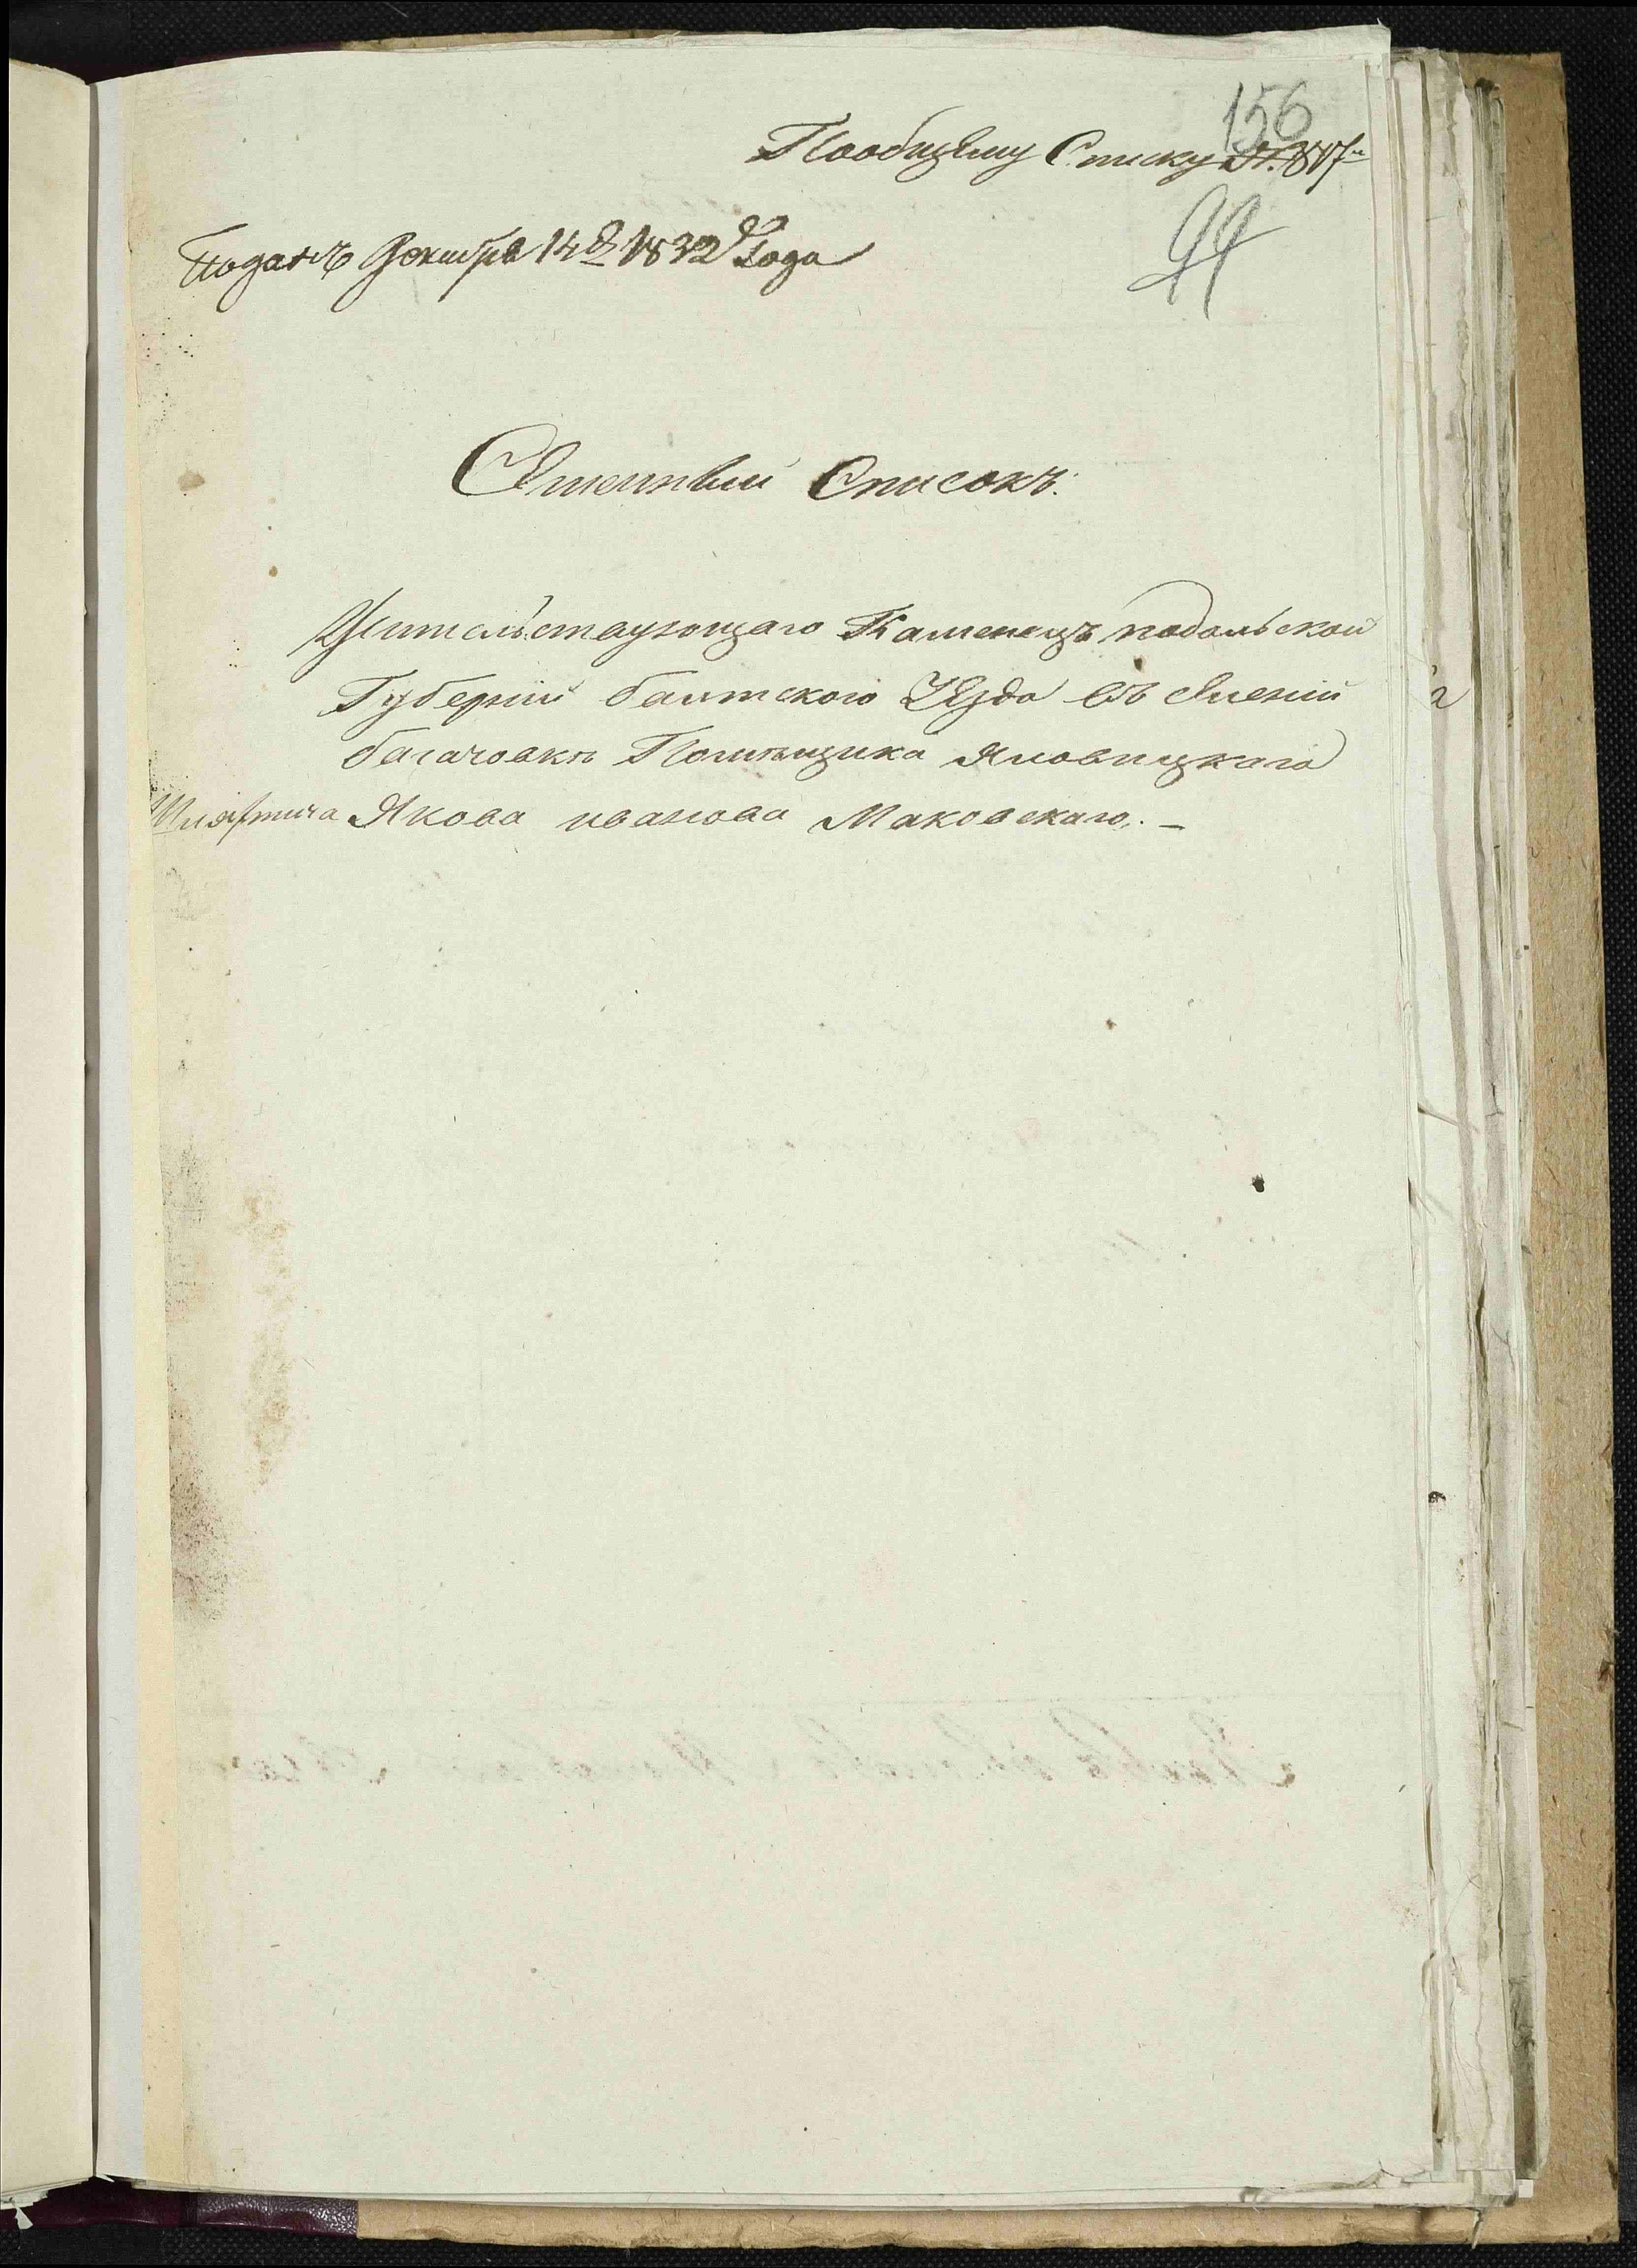 156
Пообщему Списку №. 817й
99
Поданъ Декабря 14 д 1832 Года
Сѣмейный Списокъ.
Жительствующаго Каменецъ подольской
Губерніи балтскаго Уѣзда въ имѣніи
багачовкѣ Помѣщика Яловицкаго
Шляхтича Якова иванова Маковскаго. –